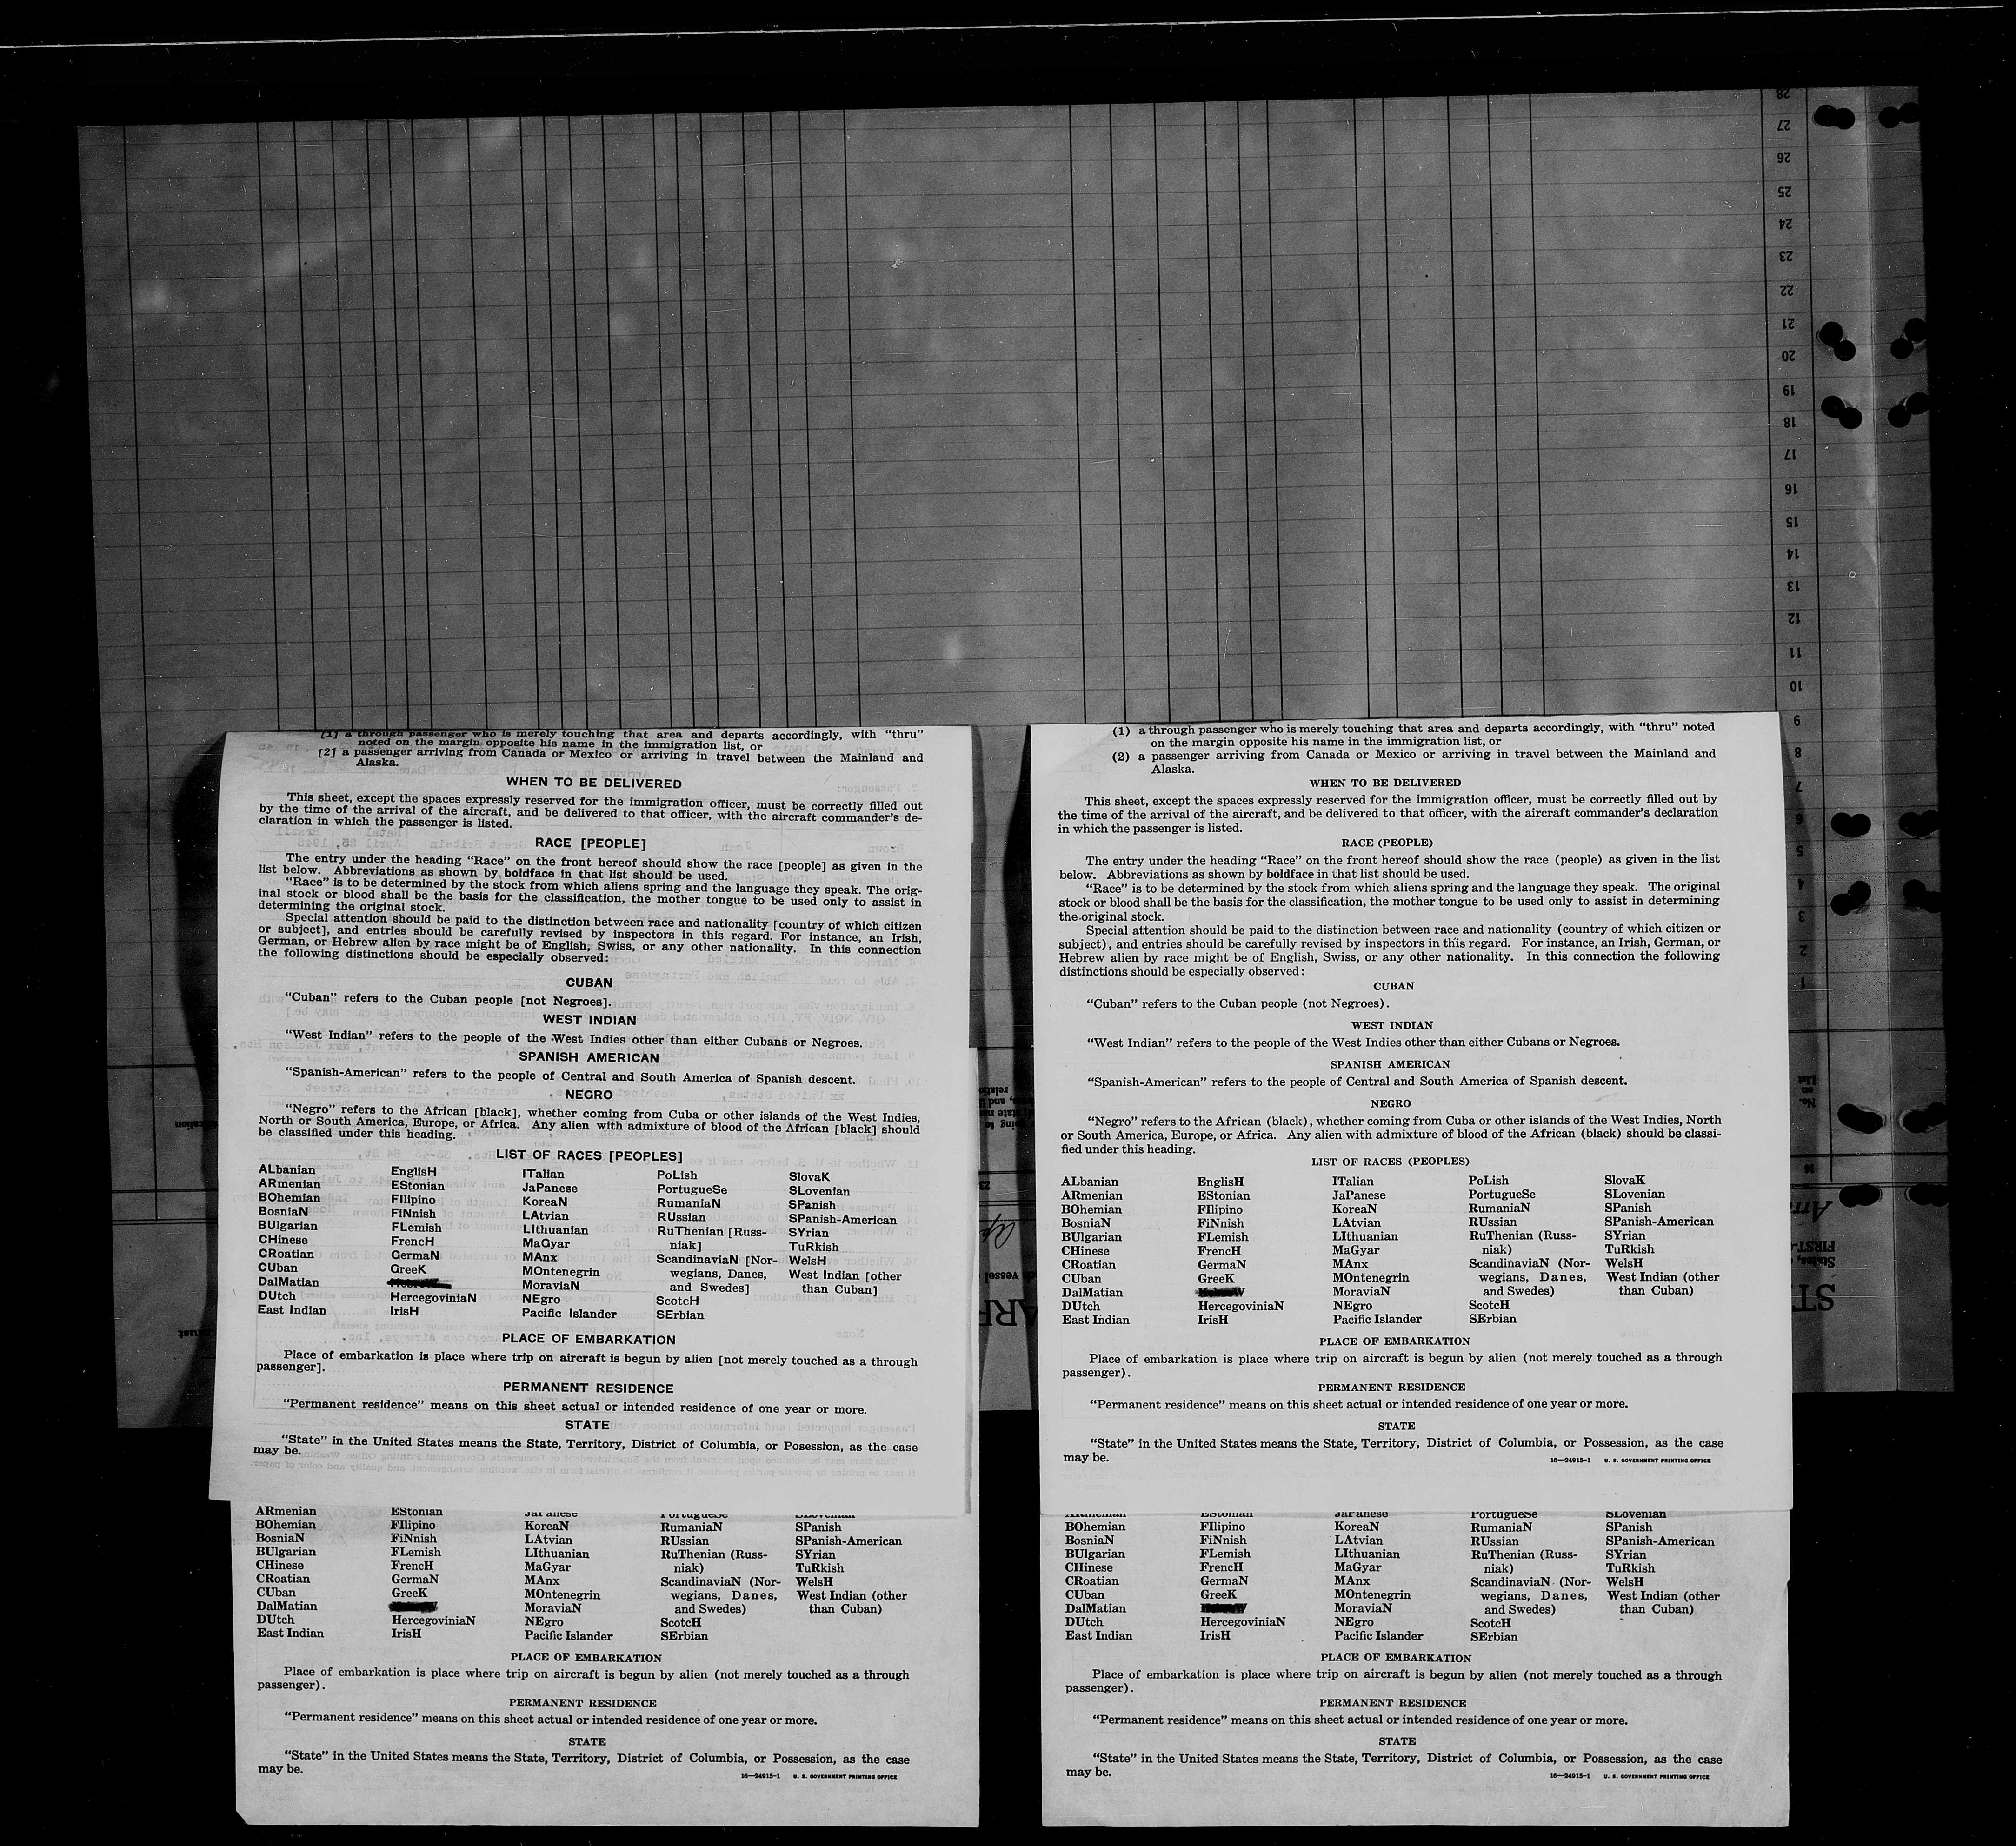 28
27
26
25
24
23
22
21
20
19
18
17
16
15
14
13
12
11
10
9
8
7
6
5
4
3
2
1
[1] a through passenger who is merely touching that area and departs accordingly, with “thru”
noted on the margin opposite his name in the immigration list, or
[2] a passenger arriving from Canada or Mexico or arriving in travel between the Mainland and
Alaska.
WHEN TO BE DELIVERED
This sheet, except the spaces expressly reserved for the immigration officer, must be correctly filled out
by the time of the arrival of the aircraft, and be delivered to that officer, with the aircraft commander's de-
claration in which the passenger is listed.
RACE [PEOPLE]
The entry under the heading “Race” on the front hereof should show the race [people] as given in the
list below. Abbreviations as shown by boldface in that list should be used.
“Race” is to be determined by the stock from which aliens spring and the language they speak. The orig-
inal stock or blood shall be the basis for the classification, the mother tongue to be used only to assist in
determining the original stock.
Special attention should be paid to the distinction between race and nationality [country of which citizen
or subject], and entries should be carefully revised by inspectors in this regard. For instance, an Irish,
German, or Hebrew alien by race might be of English, Swiss, or any other nationality. In this connection
the following distinctions should be especially observed:
CUBAN
“Cuban” refers to the Cuban people [not Negroes].
WEST INDIAN
“West Indian” refers to the people of the West Indies other than either Cubans or Negroes.
SPANISH AMERICAN
“Spanish-American” refers to the people of Central and South America of Spanish descent.
NEGRO
“Negro” refers to the African [black], whether coming from Cuba or other islands of the West Indies,
North or South America, Europe, or Africa. Any alien with admixture of blood of the African [black] should
be classified under this heading.
LIST OF RACES [PEOPLES]
ALbanian
ARmenian
BOhemian
BosniaN
BUlgarian
CHinese
CRoatian
CUban
DalMatian
DUtch
East Indian
EnglisH
EStonian
FIlipino
FiNnish
FLemish
FrencH
GermaN
GreeK
HercegoviniaN
IrisH
ITalian
JaPanese
KoreaN
LAtvian
LIthuanian
MaGyar
MAnx
MOntenegrin
MoraviaN
NEgro
Pacific Islander
PoLish
PortugueSe
RumaniaN
RUssian
RuThenian [Russ-
niak]
ScandinaviaN [Nor-
wegians, Danes,
and Swedes]
ScotcH
SErbian
SlovaK
SLovenian
SPanish
SPanish-American
SYrian
TuRkish
WelsH
West Indian [other
than Cuban]
PLACE OF EMBARKATION
Place of embarkation is place where trip on aircraft is begun by alien [not merely touched as a through
passenger].
PERMANENT RESIDENCE
“Permanent residence” means on this sheet actual or intended residence of one year or more.
STATE
“State” in the United States means the State, Territory, District of Columbia, or Posession, as the case
may be.
(1) a through passenger who is merely touching that area and departs accordingly, with “thru” noted
on the margin opposite his name in the immigration list, or
(2) a passenger arriving from Canada or Mexico or arriving in travel between the Mainland and
Alaska.
WHEN TO BE DELIVERED
This sheet, except the spaces expressly reserved for the immigration officer, must be correctly filled out by
the time of the arrival of the aircraft, and be delivered to that officer, with the aircraft commander's declaration
in which the passenger is listed.
RACE (PEOPLE)
The entry under the heading “Race” on the front hereof should show the race (people) as given in the list
below. Abbreviations as shown by boldface in that list should be used.
“Race” is to be determined by the stock from which aliens spring and the language they speak. The original
stock or blood shall be the basis for the classification, the mother tongue to be used only to assist in determining
the original stock.
Special attention should be paid to the distinction between race and nationality (country of which citizen or
subject), and entries should be carefully revised by inspectors in this regard. For instance, an Irish, German, or
Hebrew alien by race might be of English, Swiss, or any other nationality. In this connection the following
distinctions should be especially observed:
CUBAN
“Cuban” refers to the Cuban people (not Negroes).
WEST INDIAN
“West Indian” refers to the people of the West Indies other than either Cubans or Negroes.
SPANISH AMERICAN
“Spanish-American” refers to the people of Central and South America of Spanish descent.
NEGRO
“Negro” refers to the African (black), whether coming from Cuba or other islands of the West Indies, North
or South America, Europe, or Africa. Any alien with admixture of blood of the African (black) should be classi-
fied under this heading.
LIST OF RACES (PEOPLES)
ALbanian
ARmenian
BOhemian
BosniaN
BUlgarian
CHinese
CRoatian
CUban
DalMatian
DUtch
East Indian
EnglisH
EStonian
FIlipino
FiNnish
FLemish
FrencH
GermaN
GreeK
HebreW
HercegoviniaN
IrisH
ITalian
JaPanese
KoreaN
LAtvian
LIthuanian
MaGyar
MAnx
MOntenegrin
MoraviaN
NEgro
Pacific Islander
PoLish
PortugueSe
RumaniaN
RUssian
RuThenian (Russ-
niak)
ScandinaviaN (Nor-
wegians, Danes,
and Swedes)
ScotcH
SErbian
SlovaK
SLovenian
SPanish
SPanish-American
SYrian
TuRkish
WelsH
West Indian (other
than Cuban)
PLACE OF EMBARKATION
Place of embarkation is place where trip on aircraft is begun by alien (not merely touched as a through
passenger).
PERMANENT RESIDENCE
“Permanent residence” means on this sheet actual or intended residence of one year or more.
STATE
“State” in the United States means the State, Territory, District of Columbia, or Possession, as the case
may be.
16—24915-1 U. S. GOVERNMENT PRINTING OFFICE
ARmenian
BOhemian
BosniaN
BUlgarian
CHinese
CRoatian
CUban
DalMatian
DUtch
East Indian
EStonian
FIlipino
FiNnish
FLemish
FrencH
GermaN
GreeK
HercegoviniaN
IrisH
JaPanese
KoreaN
LAtvian
LIthuanian
MaGyar
MAnx
MOntenegrin
MoraviaN
NEgro
Pacific Islander
PortugueSe
RumaniaN
RUssian
RuThenian (Russ-
niak)
ScandinaviaN (Nor-
wegians, Danes,
and Swedes)
ScotcH
SErbian
SLovenian
SPanish
SPanish-American
SYrian
TuRkish
WelsH
West Indian (other
than Cuban)
PLACE OF EMBARKATION
Place of embarkation is place where trip on aircraft is begun by alien (not merely touched as a through
passenger).
PERMANENT RESIDENCE
“Permanent residence” means on this sheet actual or intended residence of one year or more.
STATE
“State” in the United States means the State, Territory, District of Columbia, or Possession, as the case
may be.
16—24915-1 U. S. GOVERNMENT PRINTING OFFICE
ARmenian
BOhemian
BosniaN
BUlgarian
CHinese
CRoatian
CUban
DalMatian
DUtch
East Indian
EStonian
FIlipino
FiNnish
FLemish
FrencH
GermaN
GreeK
HercegoviniaN
IrisH
JaPanese
KoreaN
LAtvian
LIthuanian
MaGyar
MAnx
MOntenegrin
MoraviaN
NEgro
Pacific Islander
PortugueSe
RumaniaN
RUssian
RuThenian (Russ-
niak)
ScandinaviaN (Nor-
wegians, Danes,
and Swedes)
ScotcH
SErbian
SLovenian
SPanish
SPanish-American
SYrian
TuRkish
WelsH
West Indian (other
than Cuban)
PLACE OF EMBARKATION
Place of embarkation is place where trip on aircraft is begun by alien (not merely touched as a through
passenger).
PERMANENT RESIDENCE
“Permanent residence” means on this sheet actual or intended residence of one year or more.
STATE
“State” in the United States means the State, Territory, District of Columbia, or Possession, as the case
may be.
16—24915-1 U. S. GOVERNMENT PRINTING OFFICE